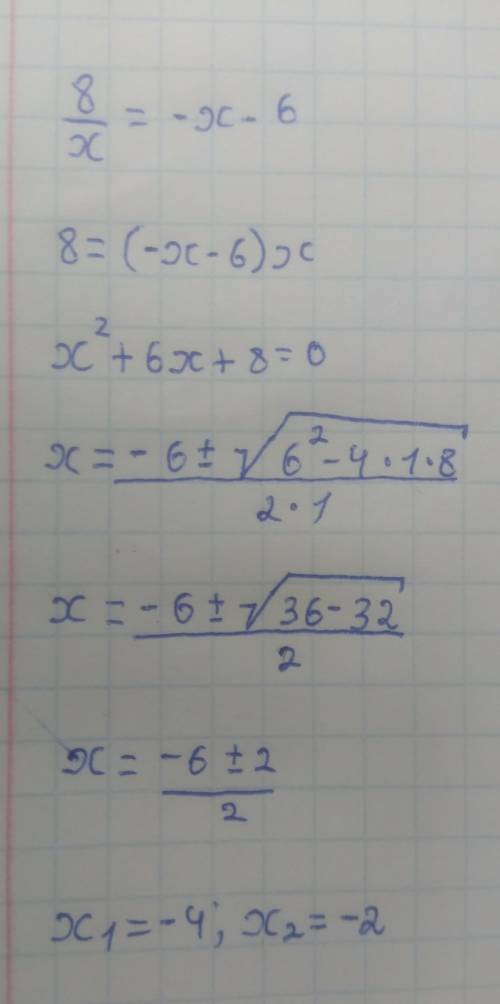 8/x = -x - 6
8 = (-x - 6)x
x² + 6x + 8 = 0
x = (-6 ± √(6² - 4 · 1 · 8))/(2 · 1)
x = (-6 ± √(36 - 32))/2
x = (-6 ± 2)/2
x₁ = -4; x₂ = -2